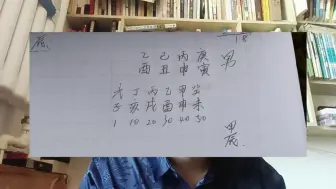 18
乙 己 丙 庚 男
酉 丑 申 寅
戊 丁 丙 乙 甲 癸
子 亥 戌 酉 申 未
1 10 20 30 40 50
甲
辰